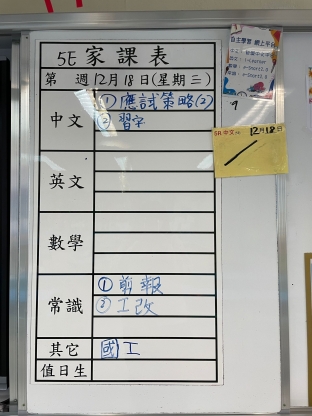 5E 家課表
第 週 12月18日(星期三)
中文
① 應試策略(2)
② 習字
英文
數學
常識
① 剪報
② 工改
其它
國 工
值日生
自主學習 網上平台
5R 中文
12月18日